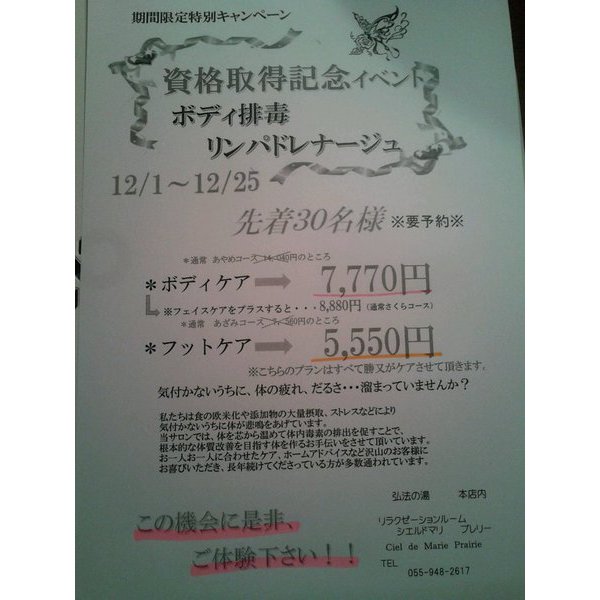 期間限定特別キャンペーン
資格取得記念イベント
ボディ排毒
リンパドレナージュ
12/1～12/25
先着30名様 ※要予約※
*通常 あやめコース 円のところ
*ボディケア 7,770円
※フェイスケアをプラスすると・・・8,880円（通常さくらコース）
*通常 あざみコース 円のところ
*フットケア 5,550円
※こちらのプランはすべて勝又がケアさせて頂きます。
気付かないうちに、体の疲れ、だるさ・・・溜まっていませんか？
私たちは食の欧米化や添加物の大量摂取、ストレスなどにより
気付かないうちに体が悲鳴をあげています。
当サロンでは、体を芯から温めて体内毒素の排出を促すことで、
根本的な体質改善を目指す体を作るお手伝いをさせて頂いています。
お一人お一人に合わせたケア、ホームアドバイスなど沢山のお客様に
お喜びいただき、長年続けてくださっている方が多数通われています。
弘法の湯 本店内
この機会に是非、
ご体験下さい！！
リラクゼーションルーム
シエルドマリ プレリー
Ciel de Marie Prairie
TEL
055-948-2617